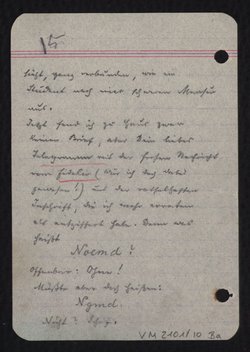 15
hübsch, ganz verbunden, wie ein
Student nach einer schweren Mensur
aus.
Jetzt fand ich zu Haus zwar
keinen Brief, aber Dein liebes
Telegramm mit der frohen Nachricht
vom Fidelio (Wär ich doch dabei
gewesen!) und der rätselhaften
Unterschrift, die ich mehr erraten
als entziffert habe. Denn was
heißt
Noemd?
Offenbar: Ohne!
Müßte aber doch heißen:
Ngmd.
Nicht?
VM 2101/10 Ba